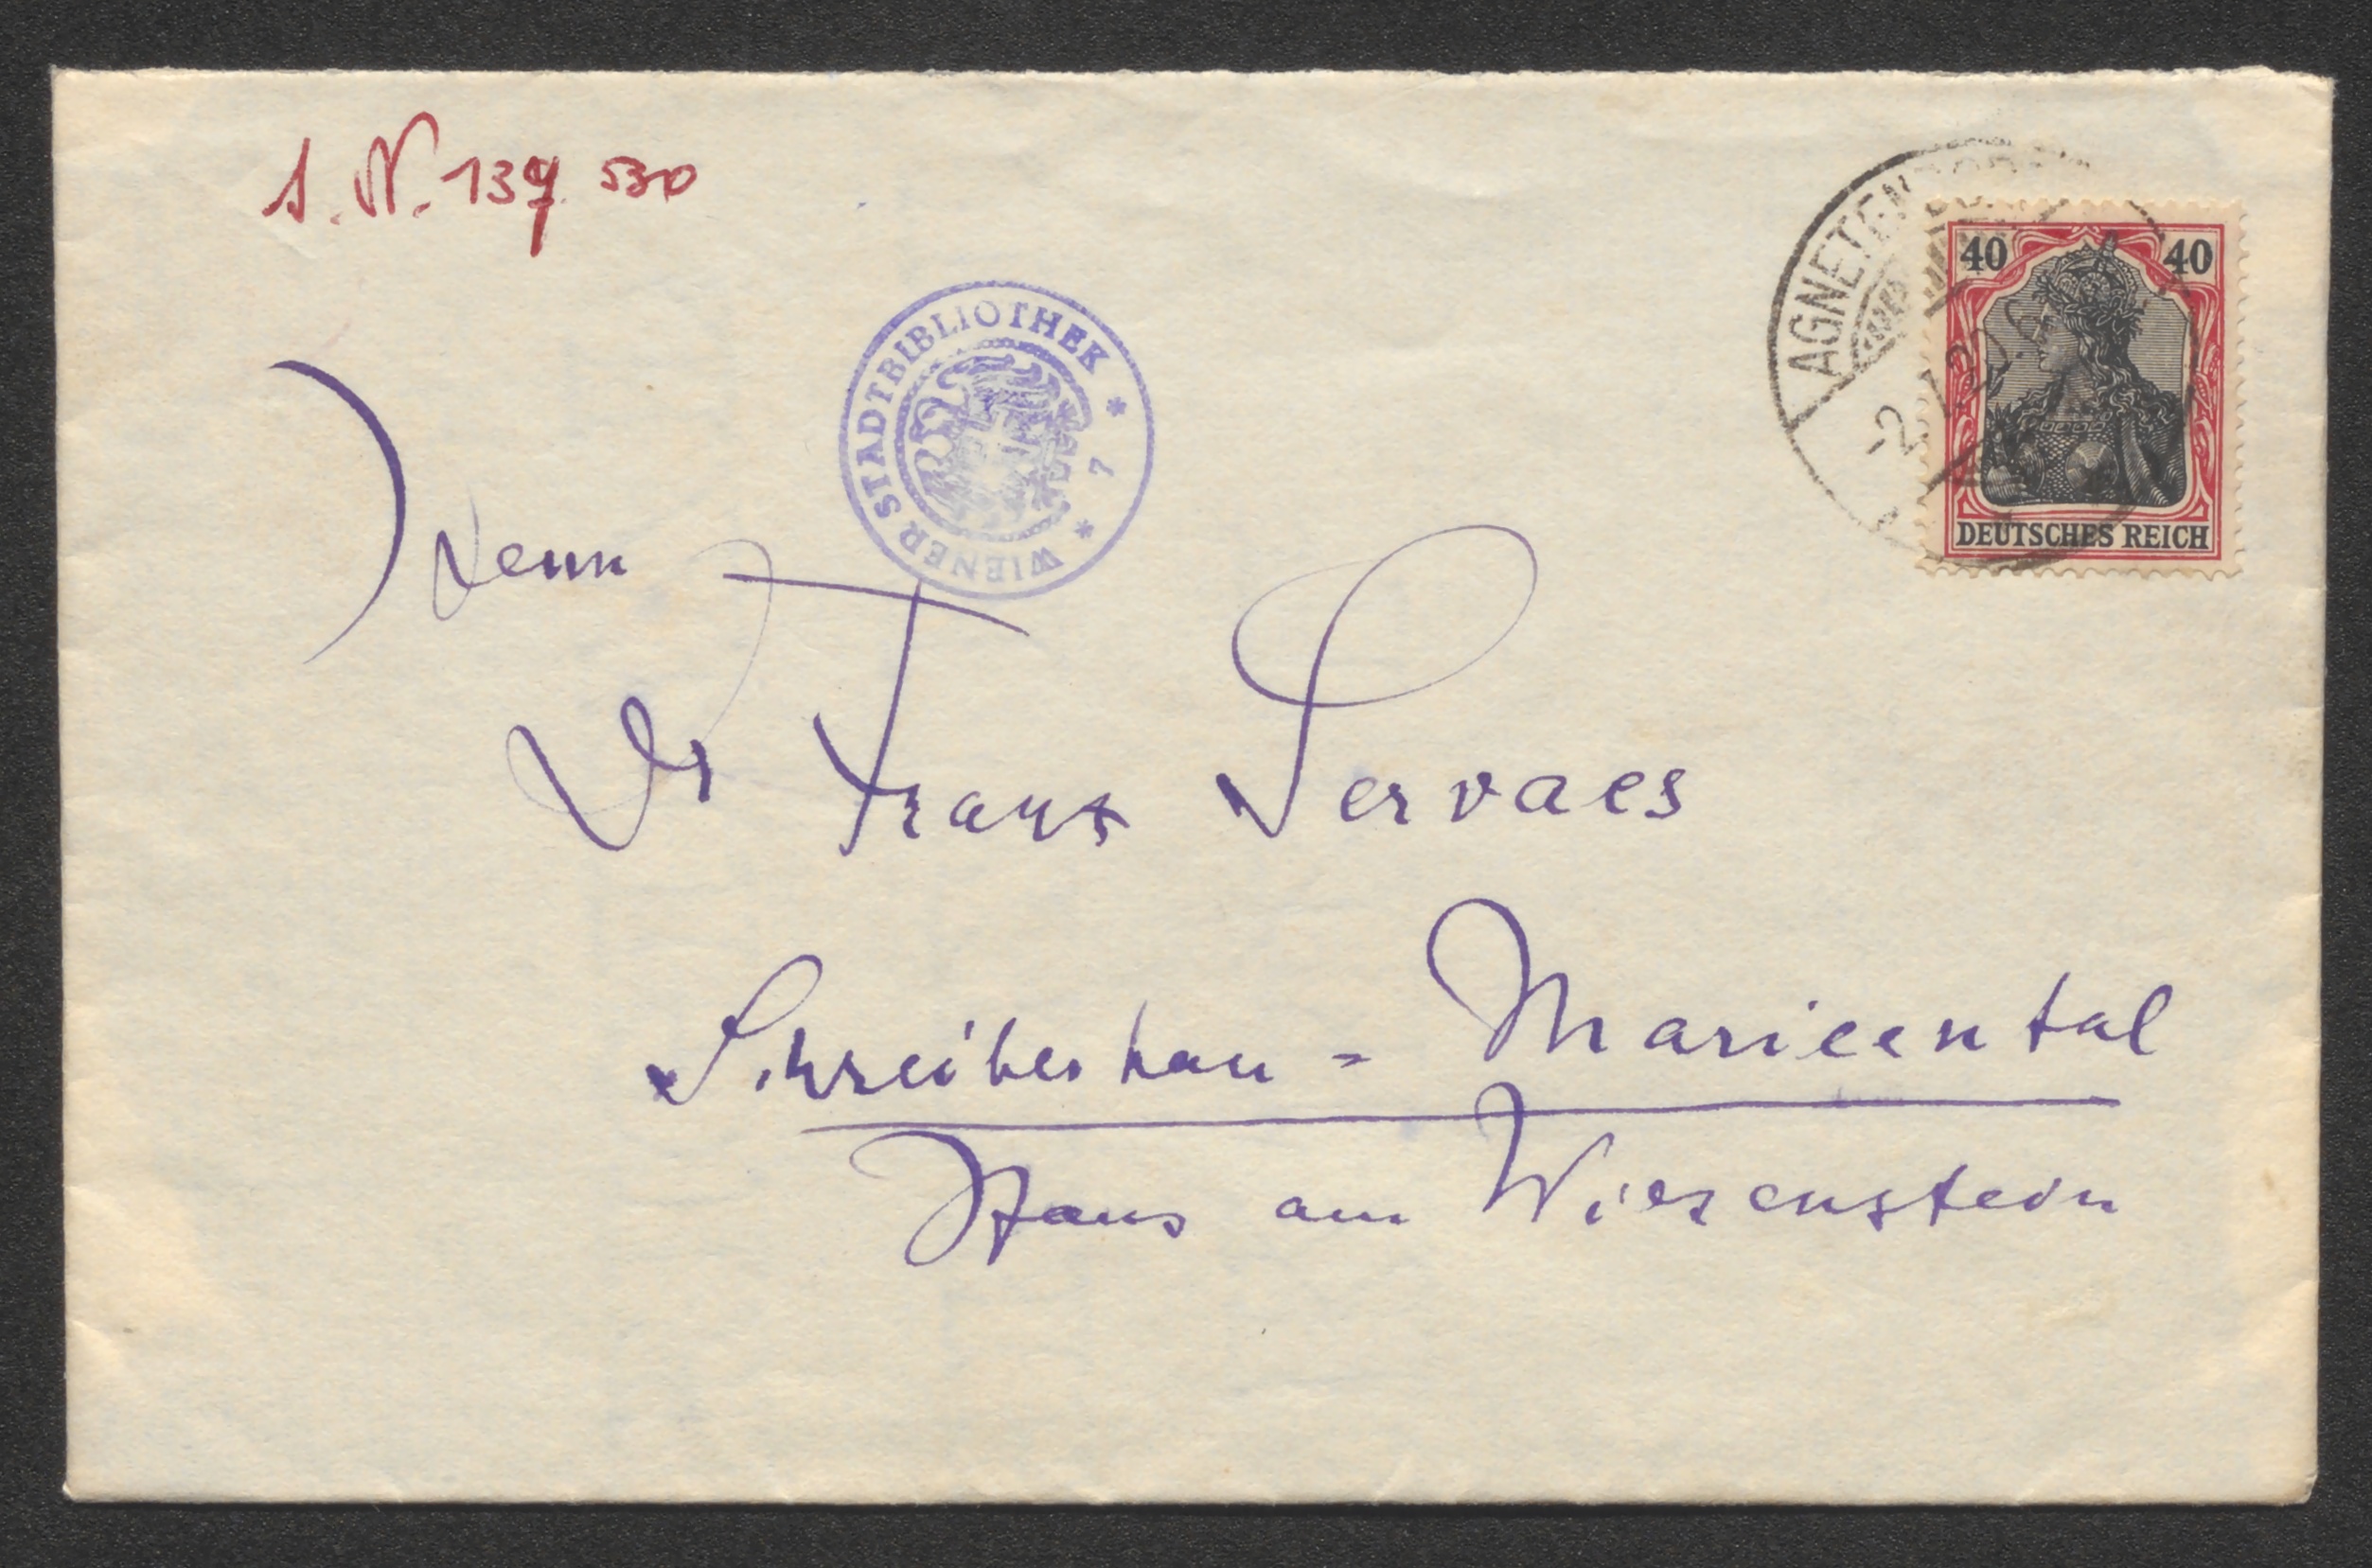 I. N. 137.530
WIENER STADTBIBLIOTHEK * 7 *
AGNETENDORF
-2.4.20.6
40 40
DEUTSCHES REICH
Herrn
Dr Franz Servaes
Schreiberhau = Marieental
Haus am Wiesenstein